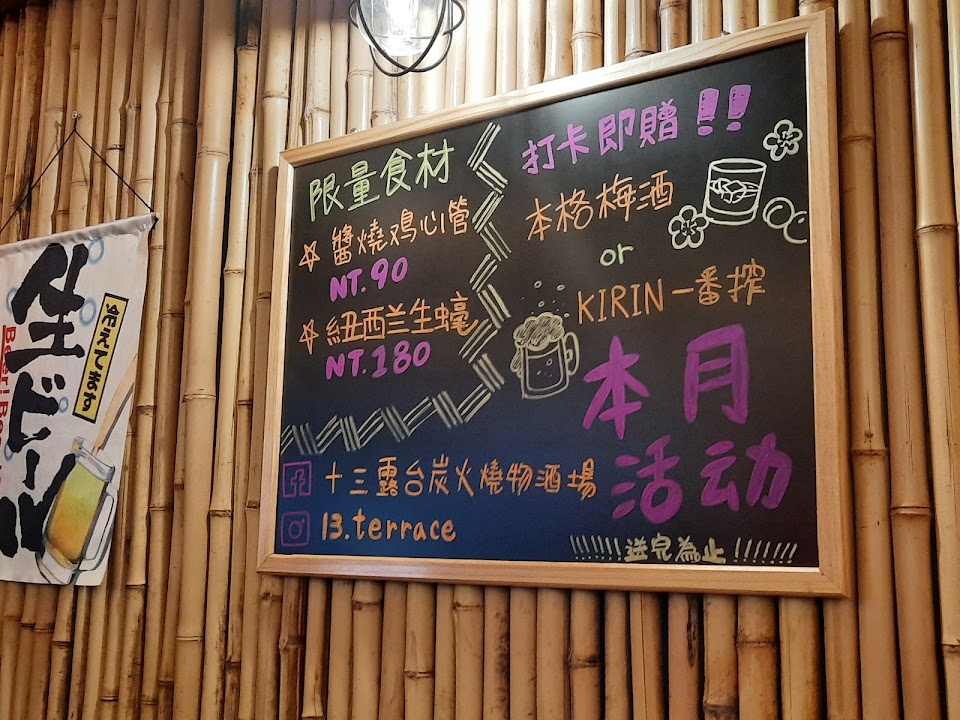 限量食材
醬燒鸡心管
NT.90
紐西兰生蠔
NT.180
打卡即贈!!
本格梅酒
or
KIRIN一番搾
本月
活动
十三露台炭火燒物酒場
13.terrace
!!!!!!!送完為止!!!!!!!
生ビール
冷えてます
Beer!